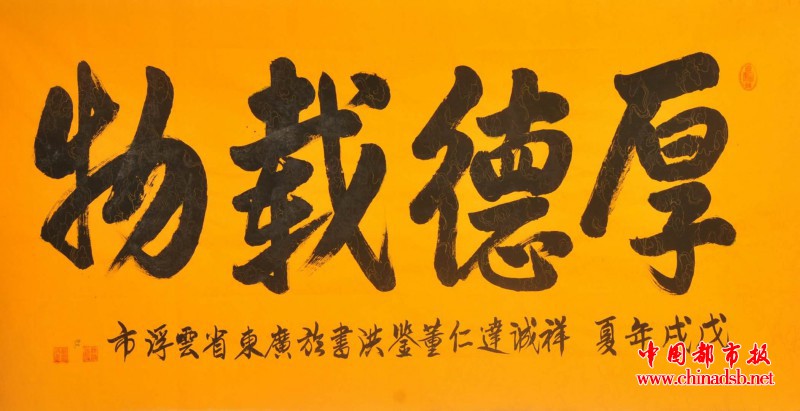 厚德載物
戊戌年夏 祥诚達仁董鉴洪書於廣東省雲浮市
中国都市报
www.chinadsb.net